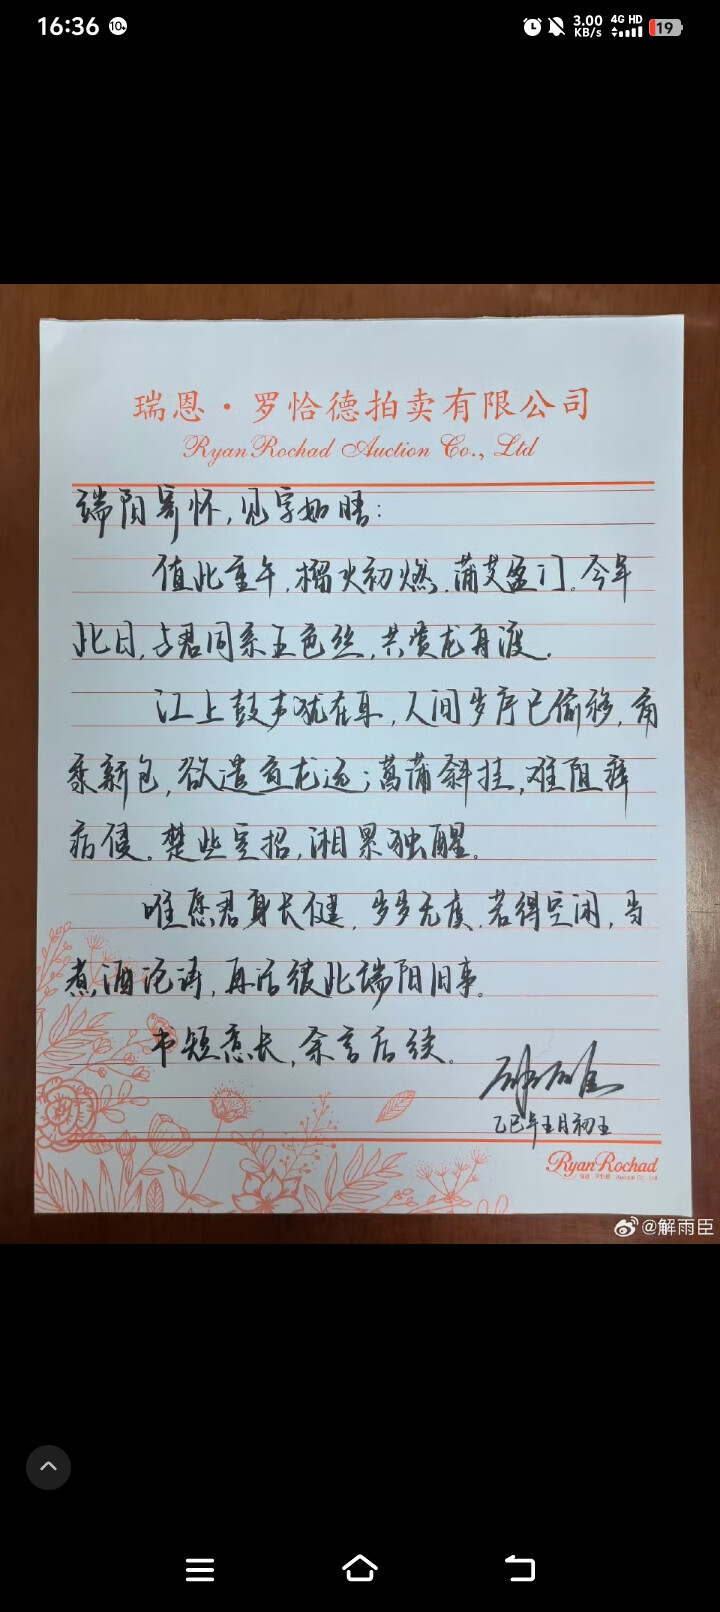 16:36
10+
3.00 KB/s
4G HD
19
瑞恩·罗恰德拍卖有限公司
Ryan Rochad Auction Co., Ltd
端阳寄怀,见字如晤:
值此重午,榴火初燃,蒲艾盈门。今年
此日,与君同系五色丝,共赏龙舟渡。
江上鼓声犹在耳,人间岁序已偷移,角
黍新包,欲遣鱼龙远;菖蒲斜挂,难阻疾
病侵。楚些空招,湘累独醒。
唯愿君身长健,岁岁无虞。若得空闲,当
煮酒沧涛,再话彼此端阳旧事。
书短意长,余言后续。
解雨臣
乙巳年五月初五
Ryan Rochad
@解雨臣